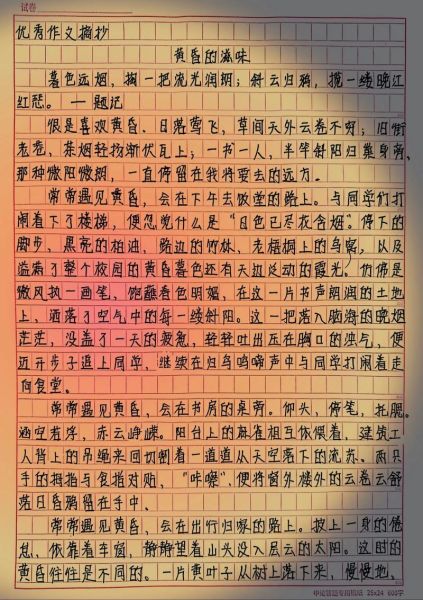 试卷
优秀作文摘抄
黄昏的滋味
暮色远烟，掬一把流光润朗；斜云归鸦，揽一缕晚江
红愁。—题记
很是喜欢黄昏、日落莺飞，草间天外云卷不穷；旧街
老巷，茶烟轻扬渐伏瓦上；一书一人，半竿斜阳归靠身旁，
那种微阳微烟，一直停留在我将要去的远方。
常常遇见黄昏，会在下午去饭堂的路上。与同学们打
闹着下了楼梯，便忽觉什么是“日色已尽花含烟”。停下的
脚步、黑亮的柏油、路边的竹林、老梧桐上的鸟窝，以及
溢满了整个校园的黄昏暮色还有天边泛动的霞光。仿佛是
微风执一画笔，饱蘸着色明媚，在这一片书声朗润的土地
上、洒落了空气中的每一缕斜阳。这一把落入脑海的晚烟
茫茫，没盖了一天的疲惫，轻轻吐出压在胸口的浊气，便
迈开步子追上同学，继续在归鸟鸣啼声中与同学打闹着走
向食堂。
常常遇见黄昏，会在书房的桌旁。仰头，停笔，托腮。
涵空若浮，赤云峥嵘。阳台上的麻雀相互依偎着，建筑工
人背上的吊绳来回切割着一道道从天空落下的流苏、两只
手的拇指与食指对贴，“咔嚓”，便将窗外楼外的云卷云舒
落日昏鸦留在手中。
常常遇见黄昏，会在出行归家的路上。披上一身的倦
怠、依靠着车窗，静静望着山头没入层云的太阳。这时的
黄昏往往是不同的。一片黄叶子从树上落下来，慢慢地、
申论答题专用稿纸 25x24 600字